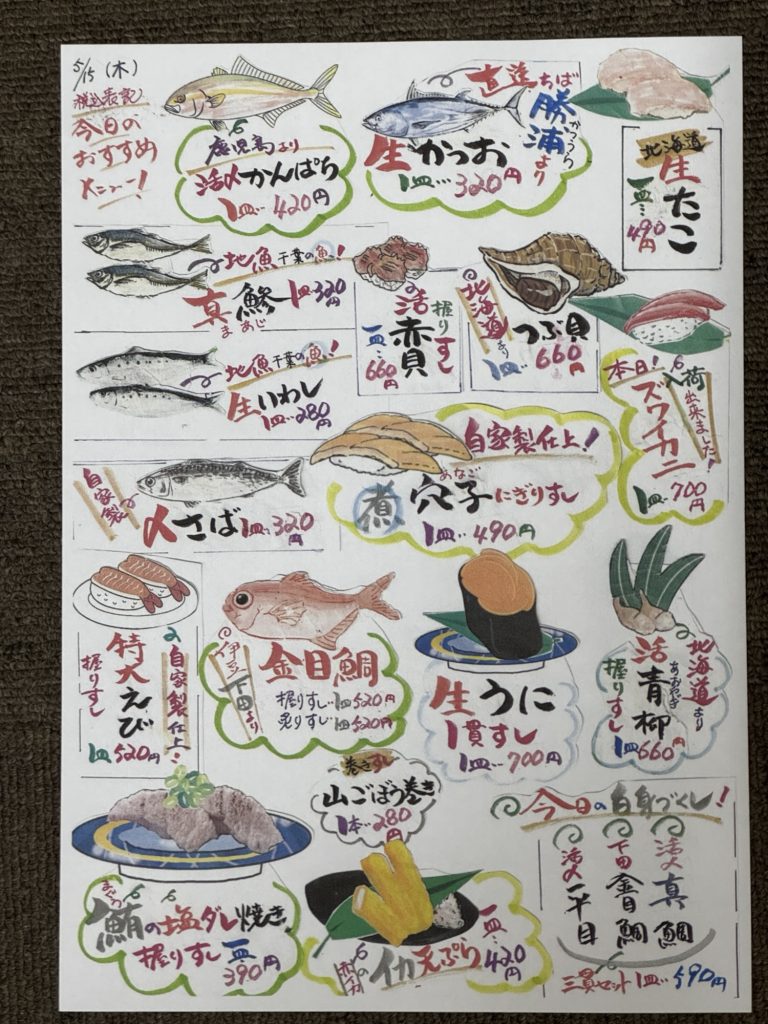 5/15 (木)
税込表記
今日の
おすすめ
メニュー!
鹿児島より
活〆かんぱち
1皿…420円
直送ちば
勝浦より
かつうら
生かつお
1皿…320円
北海道
生たこ
一皿…490円
地魚千葉の魚!
真鯵 1皿320円
まあじ
地魚千葉の魚!
生いわし
1皿…280円
握りすし
活赤貝
一皿…660円
北海道より
つぶ貝
1皿660円
本日!
入荷出来ました!
ズワイカニ
1皿…700円
自家製
〆さば1皿…320円
自家製仕上!
あなご
煮穴子にぎりすし
1皿…490円
自家製仕上!
特大えび
握りすし
1皿520円
伊豆下田より
金目鯛
握りすし…1皿520円
炙りすし 1皿520円
生うに
1貫すし
1皿…700円
北海道より
活青柳
あおやぎ
握りすし
1皿660円
巻きすし
山ごぼう巻き
1本…280円
まぐろ
鮪の塩ダレ焼き
握りすし一皿…
390円
イカ天ぷら
一皿…420円
今日の白身づくし!
活〆真鯛
下田金目鯛
活〆平目
三貫セット1皿…590円